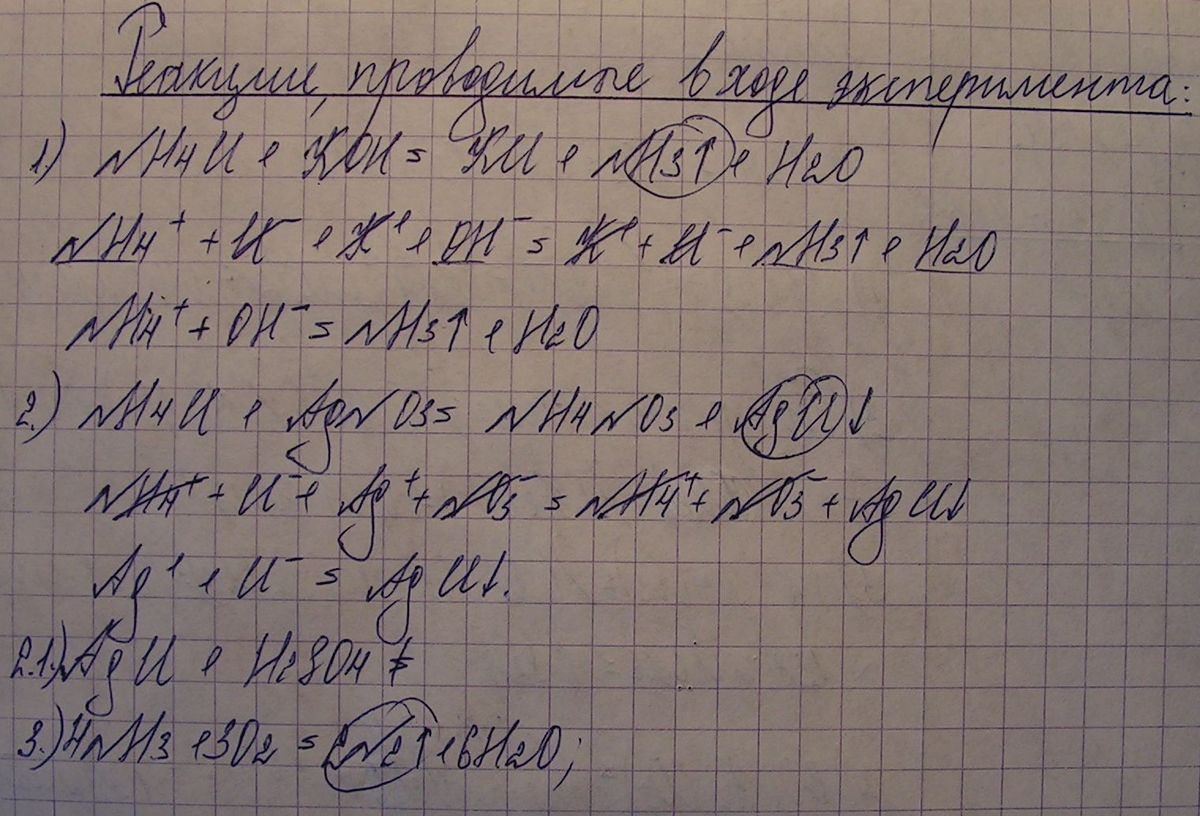 Реакции, проводимые в ходе эксперимента:
1.) NH4Cl + KOH = KCl + NH3↑ + H2O
NH4⁺ + Cl⁻ + K⁺ + OH⁻ = K⁺ + Cl⁻ + NH3↑ + H2O
NH4⁺ + OH⁻ = NH3↑ + H2O
2.) NH4Cl + AgNO3 = NH4NO3 + AgCl↓
NH4⁺ + Cl⁻ + Ag⁺ + NO3⁻ = NH4⁺ + NO3⁻ + AgCl↓
Ag⁺ + Cl⁻ = AgCl↓.
2.1.) AgCl + H2SO4 ≠
3.) 4NH3 + 3O2 = 2N2↑ + 6H2O;